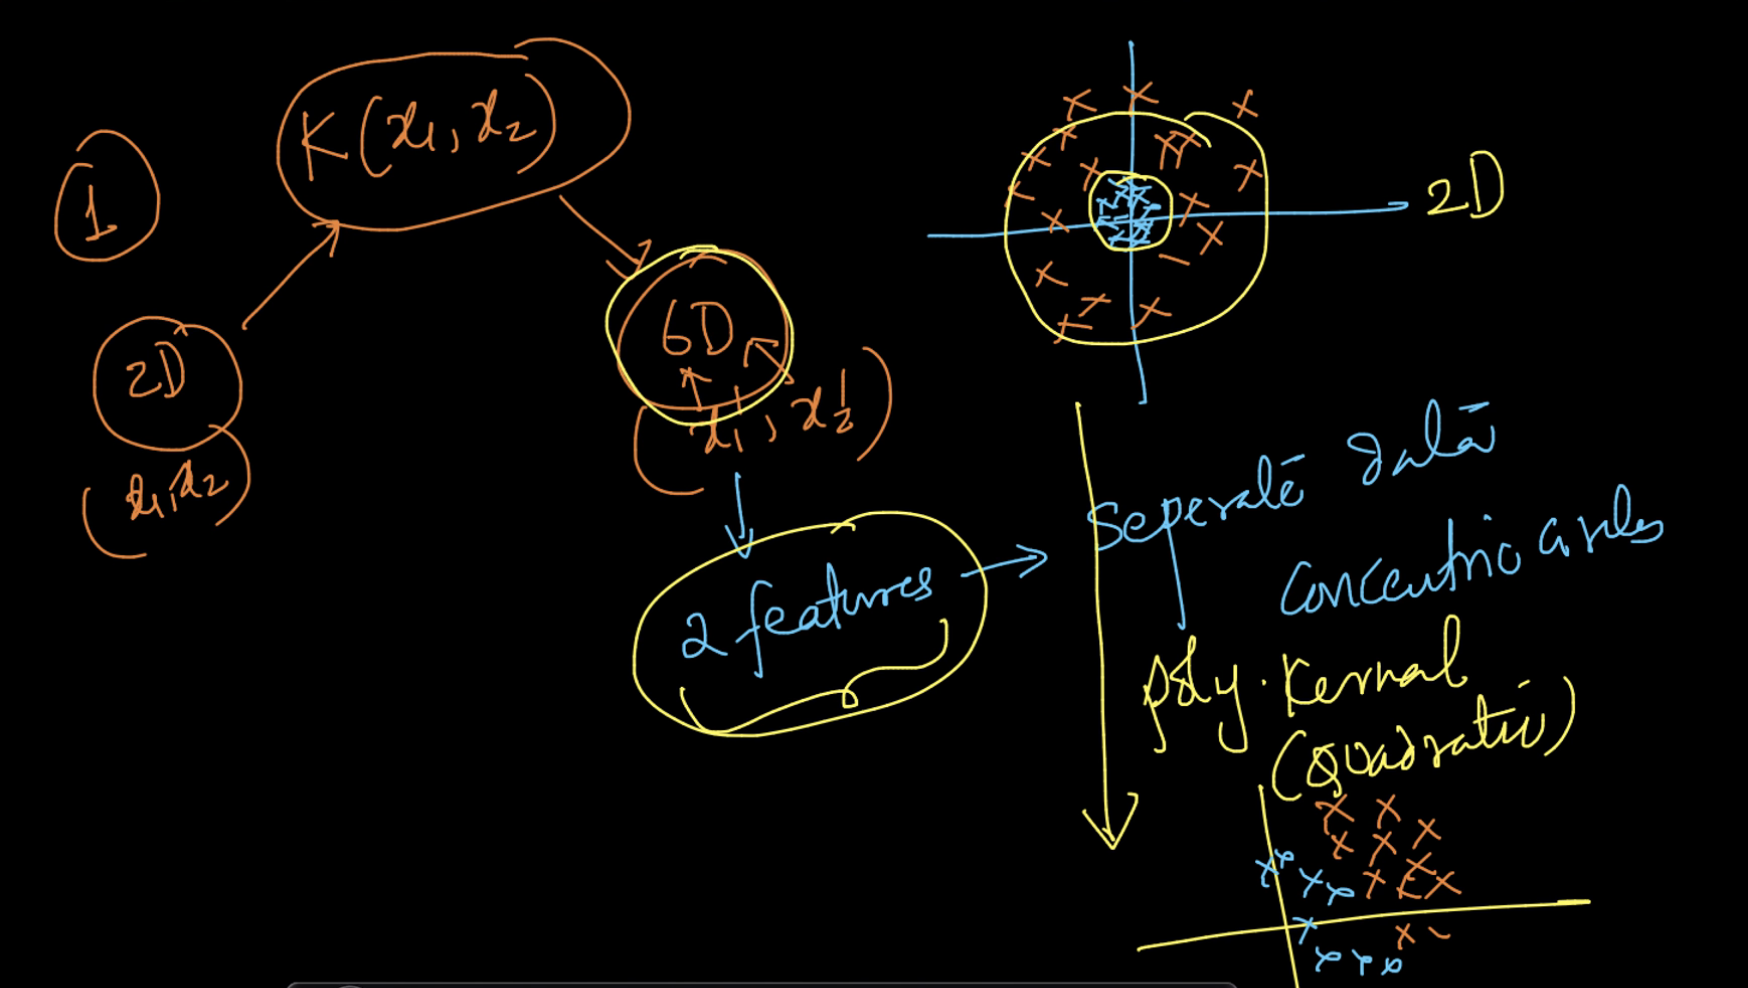 1
K(x1, x2)
2D
(x1, x2)
6D
(x1', x2')
2 features
2D
Seperate data
concentric circles
poly. kernal
(Quadratic)